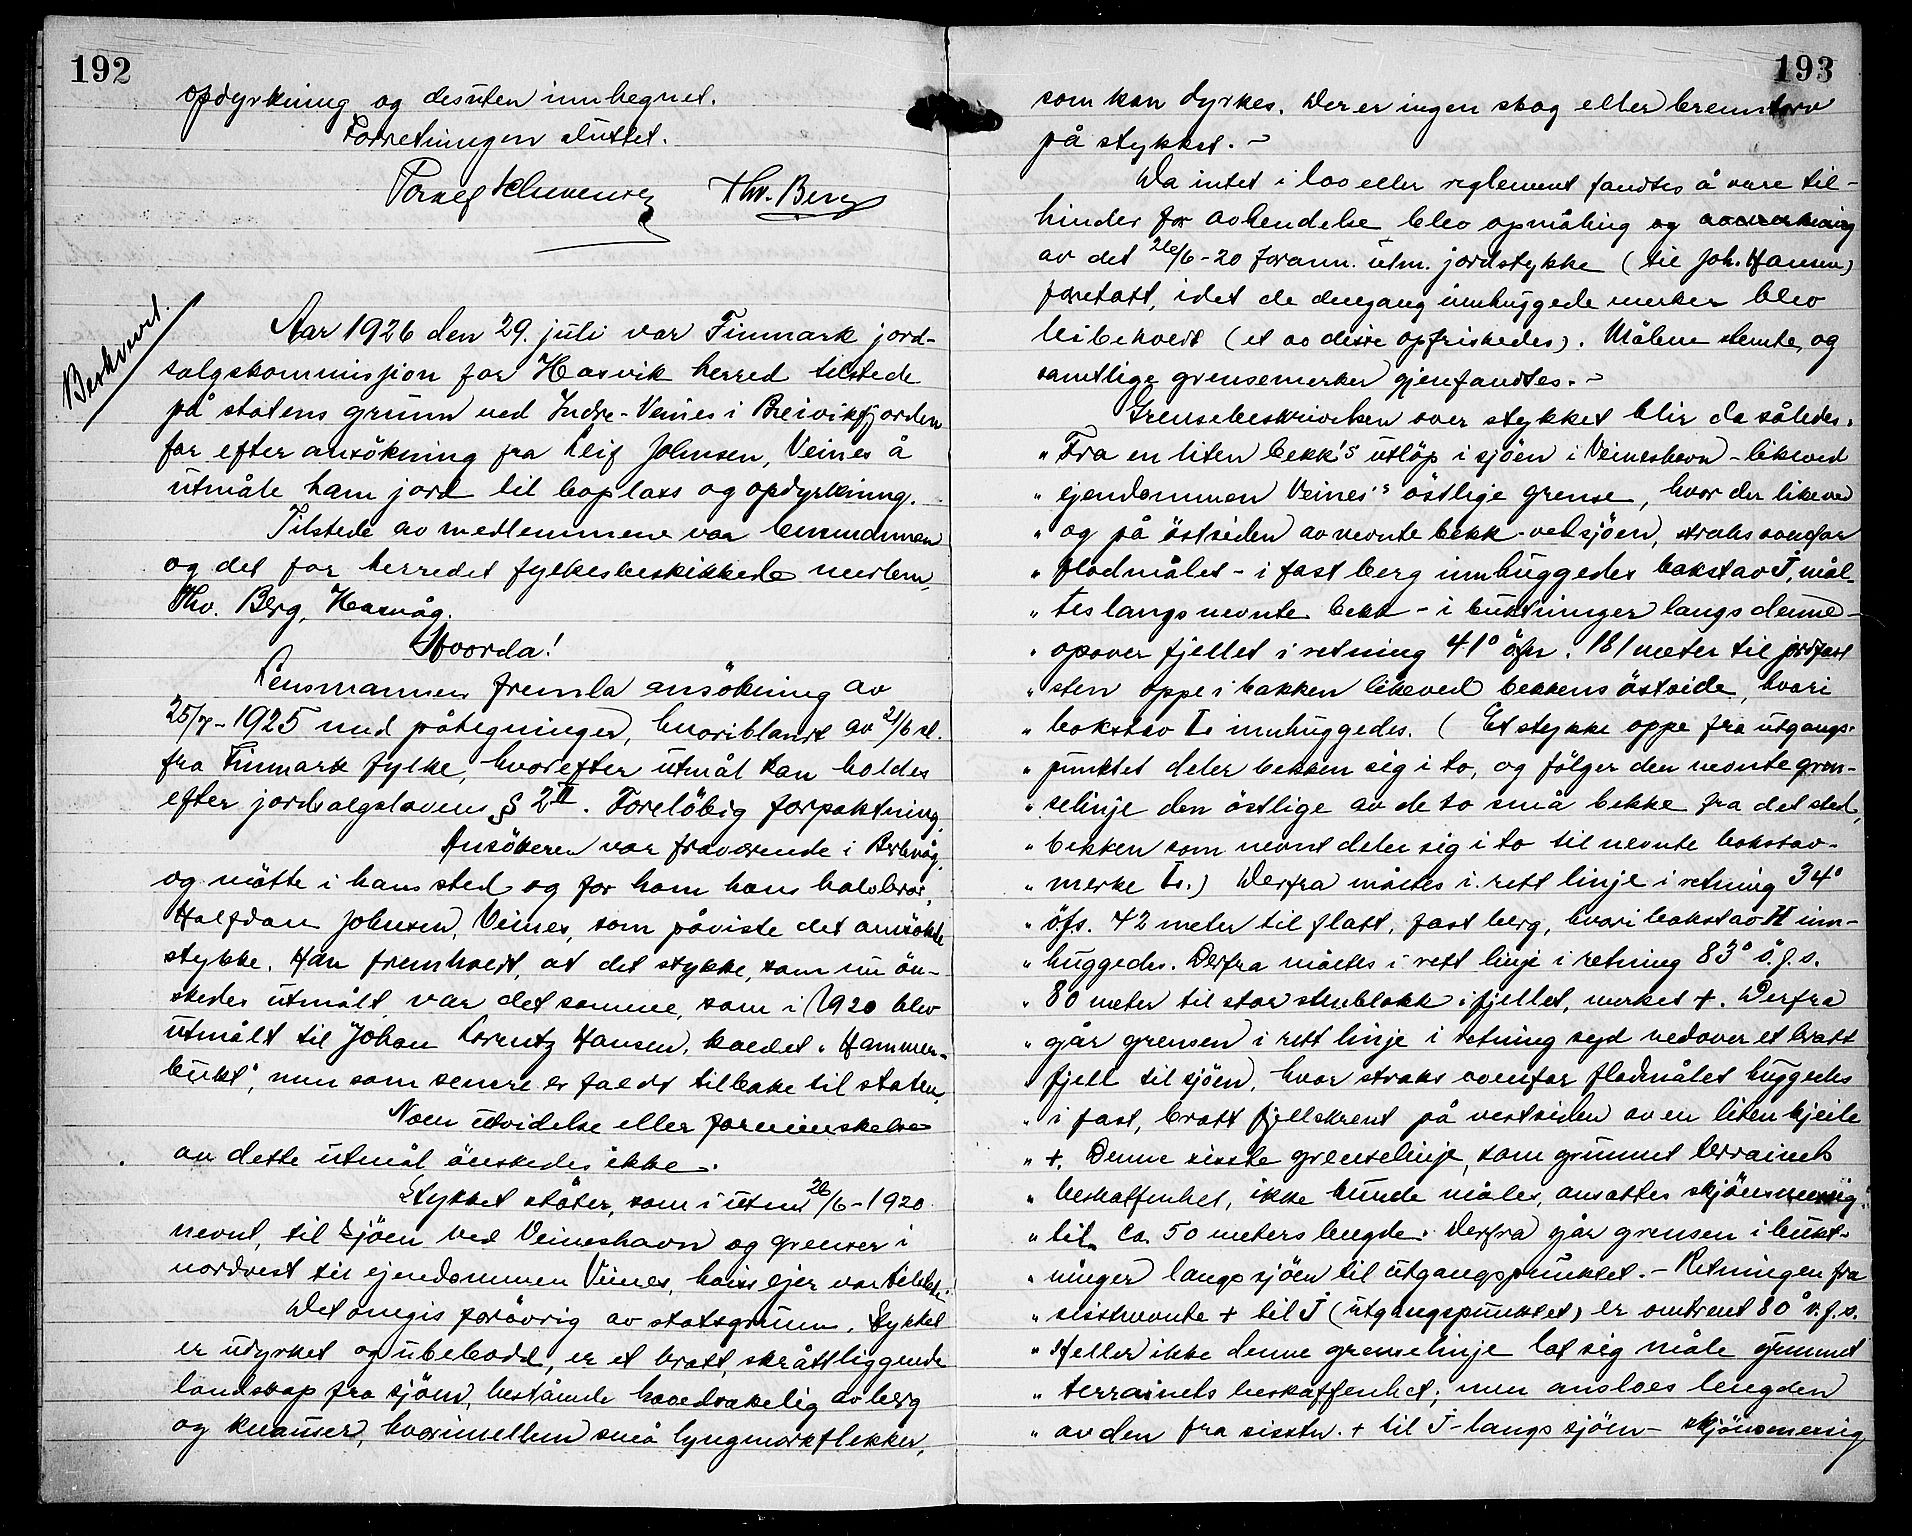 192
opdyrkning og desuten innhegnet.
Forretningen sluttet.
Thv. Berg
Beskrevet.
Aar 1926 den 29. juli var Finmark jord-
salgskommisjon for Hasvik herred tilstede
på statens grunn ved Indre-Veines i Breivikfjorden
for efter ansökning fra Leif Johnsen, Veines å
utmåle ham jord til boplass og opdyrkning.
Tilstede av medlemmene var lensmannen
og det for herredet fylkesbeskikkede medlem,
Thv. Berg, Hasvåg.
Hvorda!
Lensmannen fremla ansökning av
25/7-1925 med påtegninger, hvoriblandt av 21/6 sl.
fra Finmark fylke, hvorefter utmål kan holdes
efter jordsalgslovens § 2 II. Foreløbig forpaktning.
Ansökeren var fraværende i Berlevåg,
og mötte i hans sted og for ham hans halvbror,
Halfdan Johnsen, Veines, som påviste det ansökte
stykke. Han fremholdt, at det stykke, som nu ön-
skedes utmålt, var det samme, som i 1920 blev
utmålt til Johan Lorentz Hansen, kaldet "Hammer-
bukt", men som senere er faldt tilbake til staten.
Noen utvidelse eller forminskelse
av dette utmål önskedes ikke.
Stykket stöter, som i utm. 26/6-1920
nevnt, til sjöen ved Veineshavn og grenser i
nordvest til ejendommen Veines, hvis ejer var tilstede.
Det omgis forövrig av statsgrunn. Stykket
er udyrket og ubebodd, er et bratt, skråttliggende
landskap fra sjöen, bestående hovedsakelig av berg
og knauser, hvorimellem små lyngmarkflekker,
193
som kan dyrkes. Der er ingen skog eller brenntorv
på stykket. -
Da intet i lov eller reglement fandtes å være til-
hinder for avhendelse blev opmåling og avmerkning
av det 26/6-20 forann. utm. jordstykke (til Joh. Hansen)
foretatt, idet de dengang innhuggede merker blev
bibeholdt (et av disse opfriskedes). Målene stemte, og
samtlige grensemerker gjenfandtes. -
Grensebeskrivelsen over stykket blir da således:
" Fra en liten bekk's utlöp i sjöen i Veineshavn - likeved
" ejendommen Veines's östlige grense, hvor der likeved
" og på östsiden av nevnte bekk - ved sjöen, straks ovenfor
" flodmålet - i fast berg innhuggedes bokstav J, mål-
" tes langs nevnte bekk - i buktninger langs denne -
" opover fjellet i retning 41° öfn. 181 meter til jordfast
" sten oppe i bakken likeved bekkens östside, hvori
" bokstav L innhuggedes. (Et stykke oppe fra utgangs-
" punktet deler bekken sig i to, og fölger den nevnte gren-
" selinje den östlige av de to små bekke fra det sted,
" bekken som nevnt deler sig i to til nevnte bokstav-
" merke L.) Derfra måltes i rett linje i retning 34°
" öfs. 42 meter til flatt, fast berg, hvori bokstav H inn-
" huggedes. Derfra måltes i rett linje i retning 83° ö.f.s.
" 80 meter til stor stenblokk i fjellet, merket +. Derfra
" går grensen i rett linje i retning syd nedover et bratt
" fjell til sjöen, hvor straks ovenfor flodmålet huggedes
" i fast, bratt fjellskrent på vestsiden av en liten kjeile
" +. Denne sisste grenselinje, som grunnet terrainets
" beskaffenhet, ikke kunde måles, ansattes skjönsmessig
" til ca. 50 meters lengde. Derfra går grensen i bukt-
" ninger langs sjöen til utgangspunktet. - Retningen fra
" sisstnevnte + til J (utgangspunktet) er omtrent 80° v.f.s.
" Heller ikke denne grenselinje lot sig måle grunnet
" terrainets beskaffenhet; men ansloes lengden
" av den fra sisstn. + til J - langs sjöen - skjönsmessig